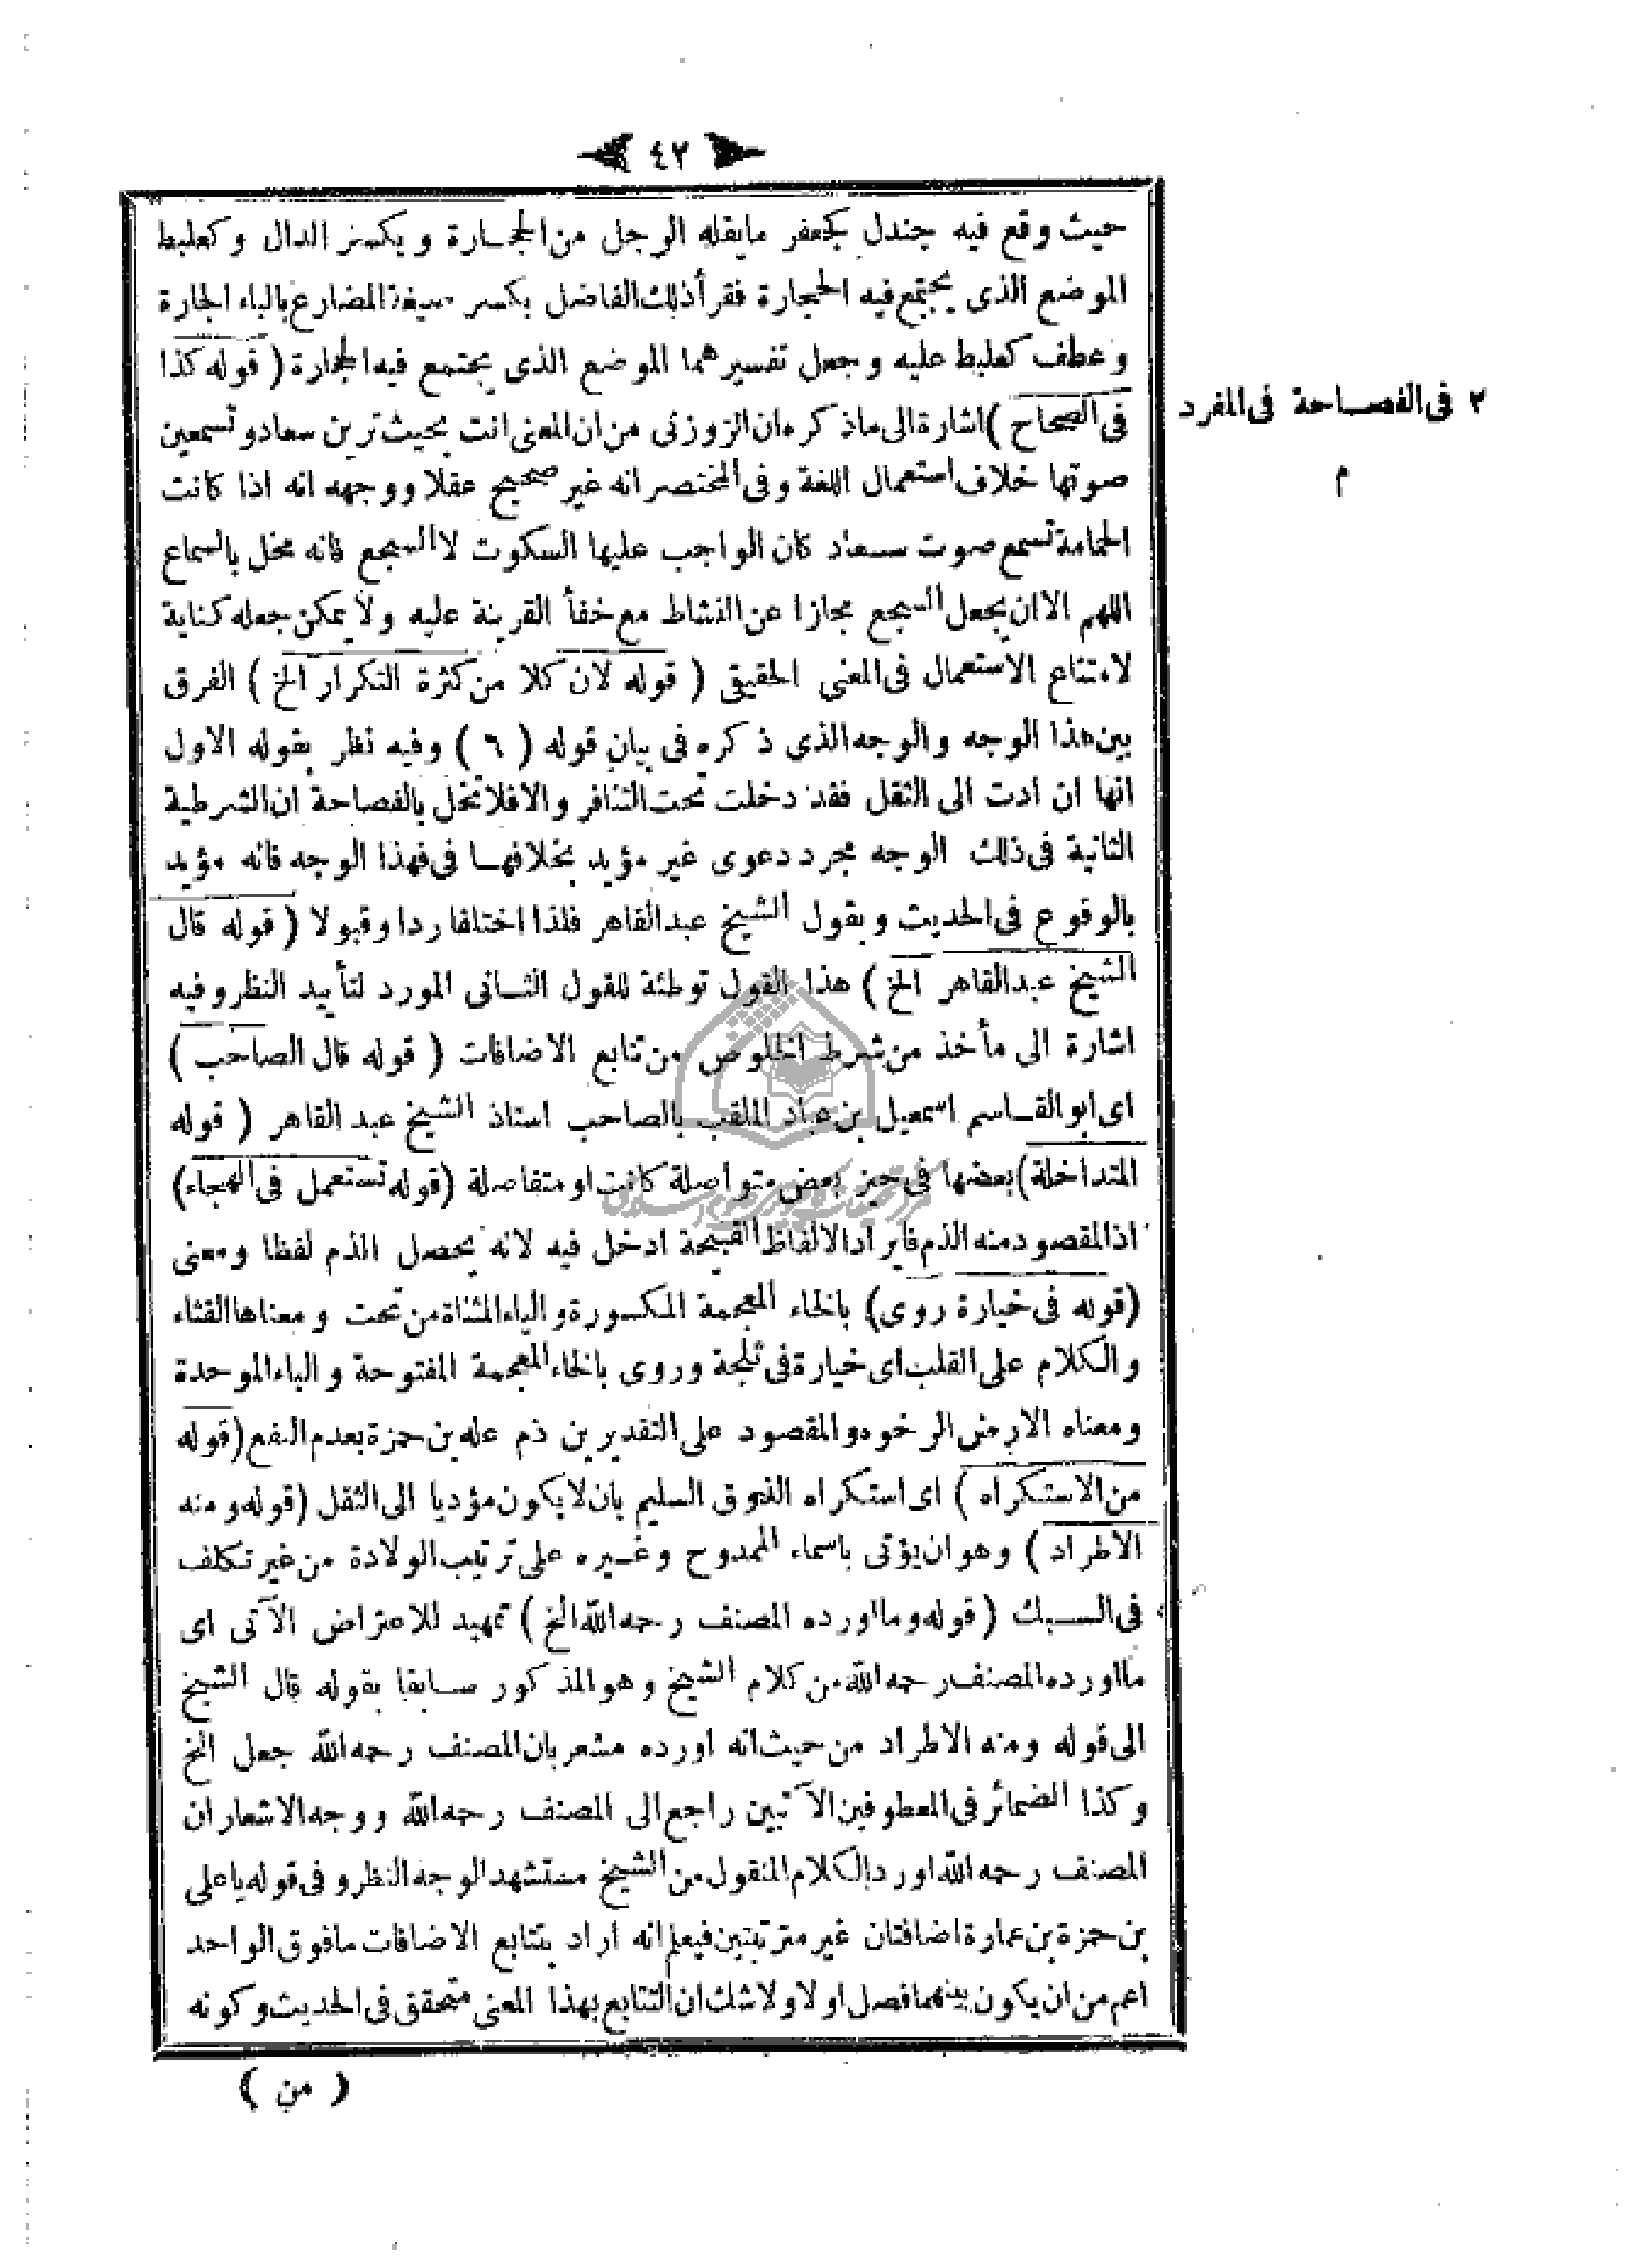 ﴿ ٤٢ ﴾
حيث وقع فيه جندل كجعفر مايقله الرجل من الحجارة ويكسر الدال وكعلبط
الموضع الذى يجتمع فيه الحجارة فقرأ ذلك الفاضل بكسر صيغة المضارع بالباء الجارة
وعطف كعلبط عليه وجعل تفسيرهما الموضع الذى يجتمع فيه الحجارة ( قوله كذا
فى الصحاح ) اشارة الى ماذكره ان الزوزنى من ان المعنى انت بحيث ترين سعاد وتسمعين
صوتها خلاف استعمال اللغة وفى المختصر انه غير صحيح عقلا ووجهه انه اذا كانت
الحمامة تسمع صوت سعاد كان الواجب عليها السكوت لا السجع فانه مخل بالسماع
اللهم الا ان يجعل السجع مجازا عن النشاط مع خفأ القرينة عليه ولا يمكن جعله كناية
لامتناع الاستعمال فى المعنى الحقيقى ( قوله لان كلا من كثرة التكرار الخ ) الفرق
بين هذا الوجه والوجه الذى ذكره فى بيان قوله ( ٦ ) وفيه نظر بقوله الاول
انها ان ادت الى الثقل فقد دخلت تحت التنافر والا فلا تخل بالفصاحة ان الشرطية
الثانية فى ذلك الوجه مجرد دعوى غير مؤيد بخلافها فى فهذا الوجه فانه مؤيد
بالوقوع فى الحديث وبقول الشيخ عبد القاهر فلذا اختلفا ردا وقبولا ( قوله قال
الشيخ عبد القاهر الخ ) هذا القول توطئة للقول الثانى المورد لتأييد النظر وفيه
اشارة الى مأخذ من شرط الخلوص من تتابع الاضافات ( قوله قال الصاحب )
اى ابو القاسم اسمعيل بن عباد الملقب بالصاحب استاذ الشيخ عبد القاهر ( قوله
المتداخلة ) بعضها فى حيز بعض متواصلة كانت او متفاصلة ( قوله تستعمل فى الهجاء )
اذ المقصود منه الذم فايراد الالفاظ القبيحة ادخل فيه لانه يحصل الذم لفظا ومعنى
( قوله فى خيارة روى ) بالخاء المعجمة المكسورة والياء المثناة من تحت ومعناها القثاء
والكلام على القلب اى خيارة فى ثلجة وروى بالخاء المعجمة المفتوحة والباء الموحدة
ومعناه الارض الرخوه والمقصود على التقديرين ذم عله بن حمزة بعدم النفع ( قوله
من الاستكراه ) اى استكراه الذوق السليم بان لا يكون مؤديا الى الثقل ( قوله ومنه
الاطراد ) وهو ان يؤتى باسماء الممدوح وغيره على ترتيب الولادة من غير تكلف
فى السبك ( قوله وما اورده المصنف رحمه الله الخ ) تمهيد للاعتراض الآتى اى
ما اورده المصنف رحمه الله من كلام الشيخ وهو المذكور سابقا بقوله قال الشيخ
الى قوله ومنه الاطراد من حيث انه اورده مشعر بان المصنف رحمه الله جعل الخ
وكذا الضمائر فى المعطوفين الآتيين راجع الى المصنف رحمه الله ووجه الاشعار ان
المصنف رحمه الله اورد الكلام المنقول من الشيخ مستشهدا لوجه النظر وفى قوله يا على
بن حمزة بن عمارة اضافتان غير مترتبتين فيعلم انه اراد بتتابع الاضافات مافوق الواحد
اعم من ان يكون بينهما فصل او لا ولا شك ان التتابع بهذا المعنى متحقق فى الحديث وكونه
( من )
٢ فى الفصاحة فى المفرد
م